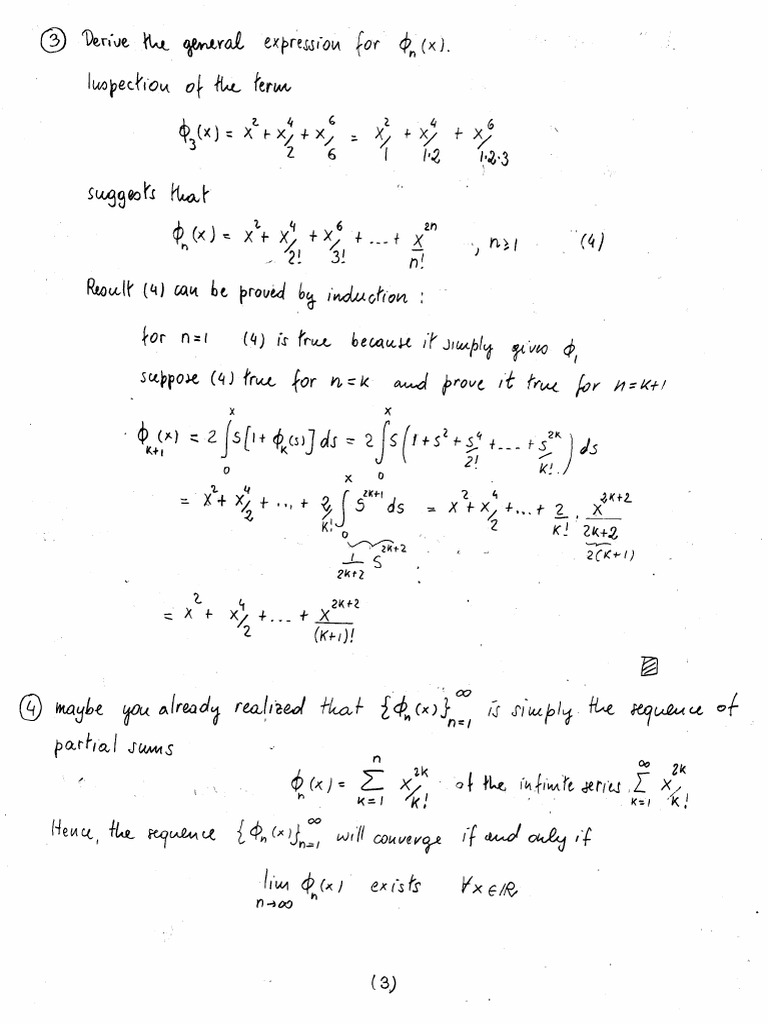 ③ Derive the general expression for ϕₙ(x).
Inspection of the term
ϕ₃(x) = x² + x⁴/2 + x⁶/6 = x²/1 + x⁴/1·2 + x⁶/1·2·3
suggests that
ϕₙ(x) = x² + x⁴/2! + x⁶/3! + ... + x²ⁿ/n! , n≥1 (4)
Result (4) can be proved by induction :
for n=1 (4) is true because it simply gives ϕ₁
suppose (4) true for n=k and prove it true for n=k+1
ϕ_{k+1}(x) = 2 ∫₀ˣ s[1+ϕ_k(s)] ds = 2 ∫₀ˣ s(1+s²+s⁴/2!+...+s^{2k}/k!) ds
= x² + x⁴/2 + ... + 2/k! ∫₀ˣ s^{2k+1} ds = x² + x⁴/2 + ... + 2/k! · x^{2k+2}/2k+2
1/2k+2 s^{2k+2} 2(k+1)
= x² + x⁴/2 + ... + x^{2k+2}/(k+1)!
④ maybe you already realized that {ϕₙ(x)}_{n=1}^∞ is simply the sequence of
partial sums
ϕₙ(x) = Σ_{k=1}^{n} x^{2k}/k! of the infinite series Σ_{k=1}^{∞} x^{2k}/k!
Hence, the sequence {ϕₙ(x)}_{n=1}^∞ will converge if and only if
lim_{n→∞} ϕₙ(x) exists ∀x∈ℝ
(3)